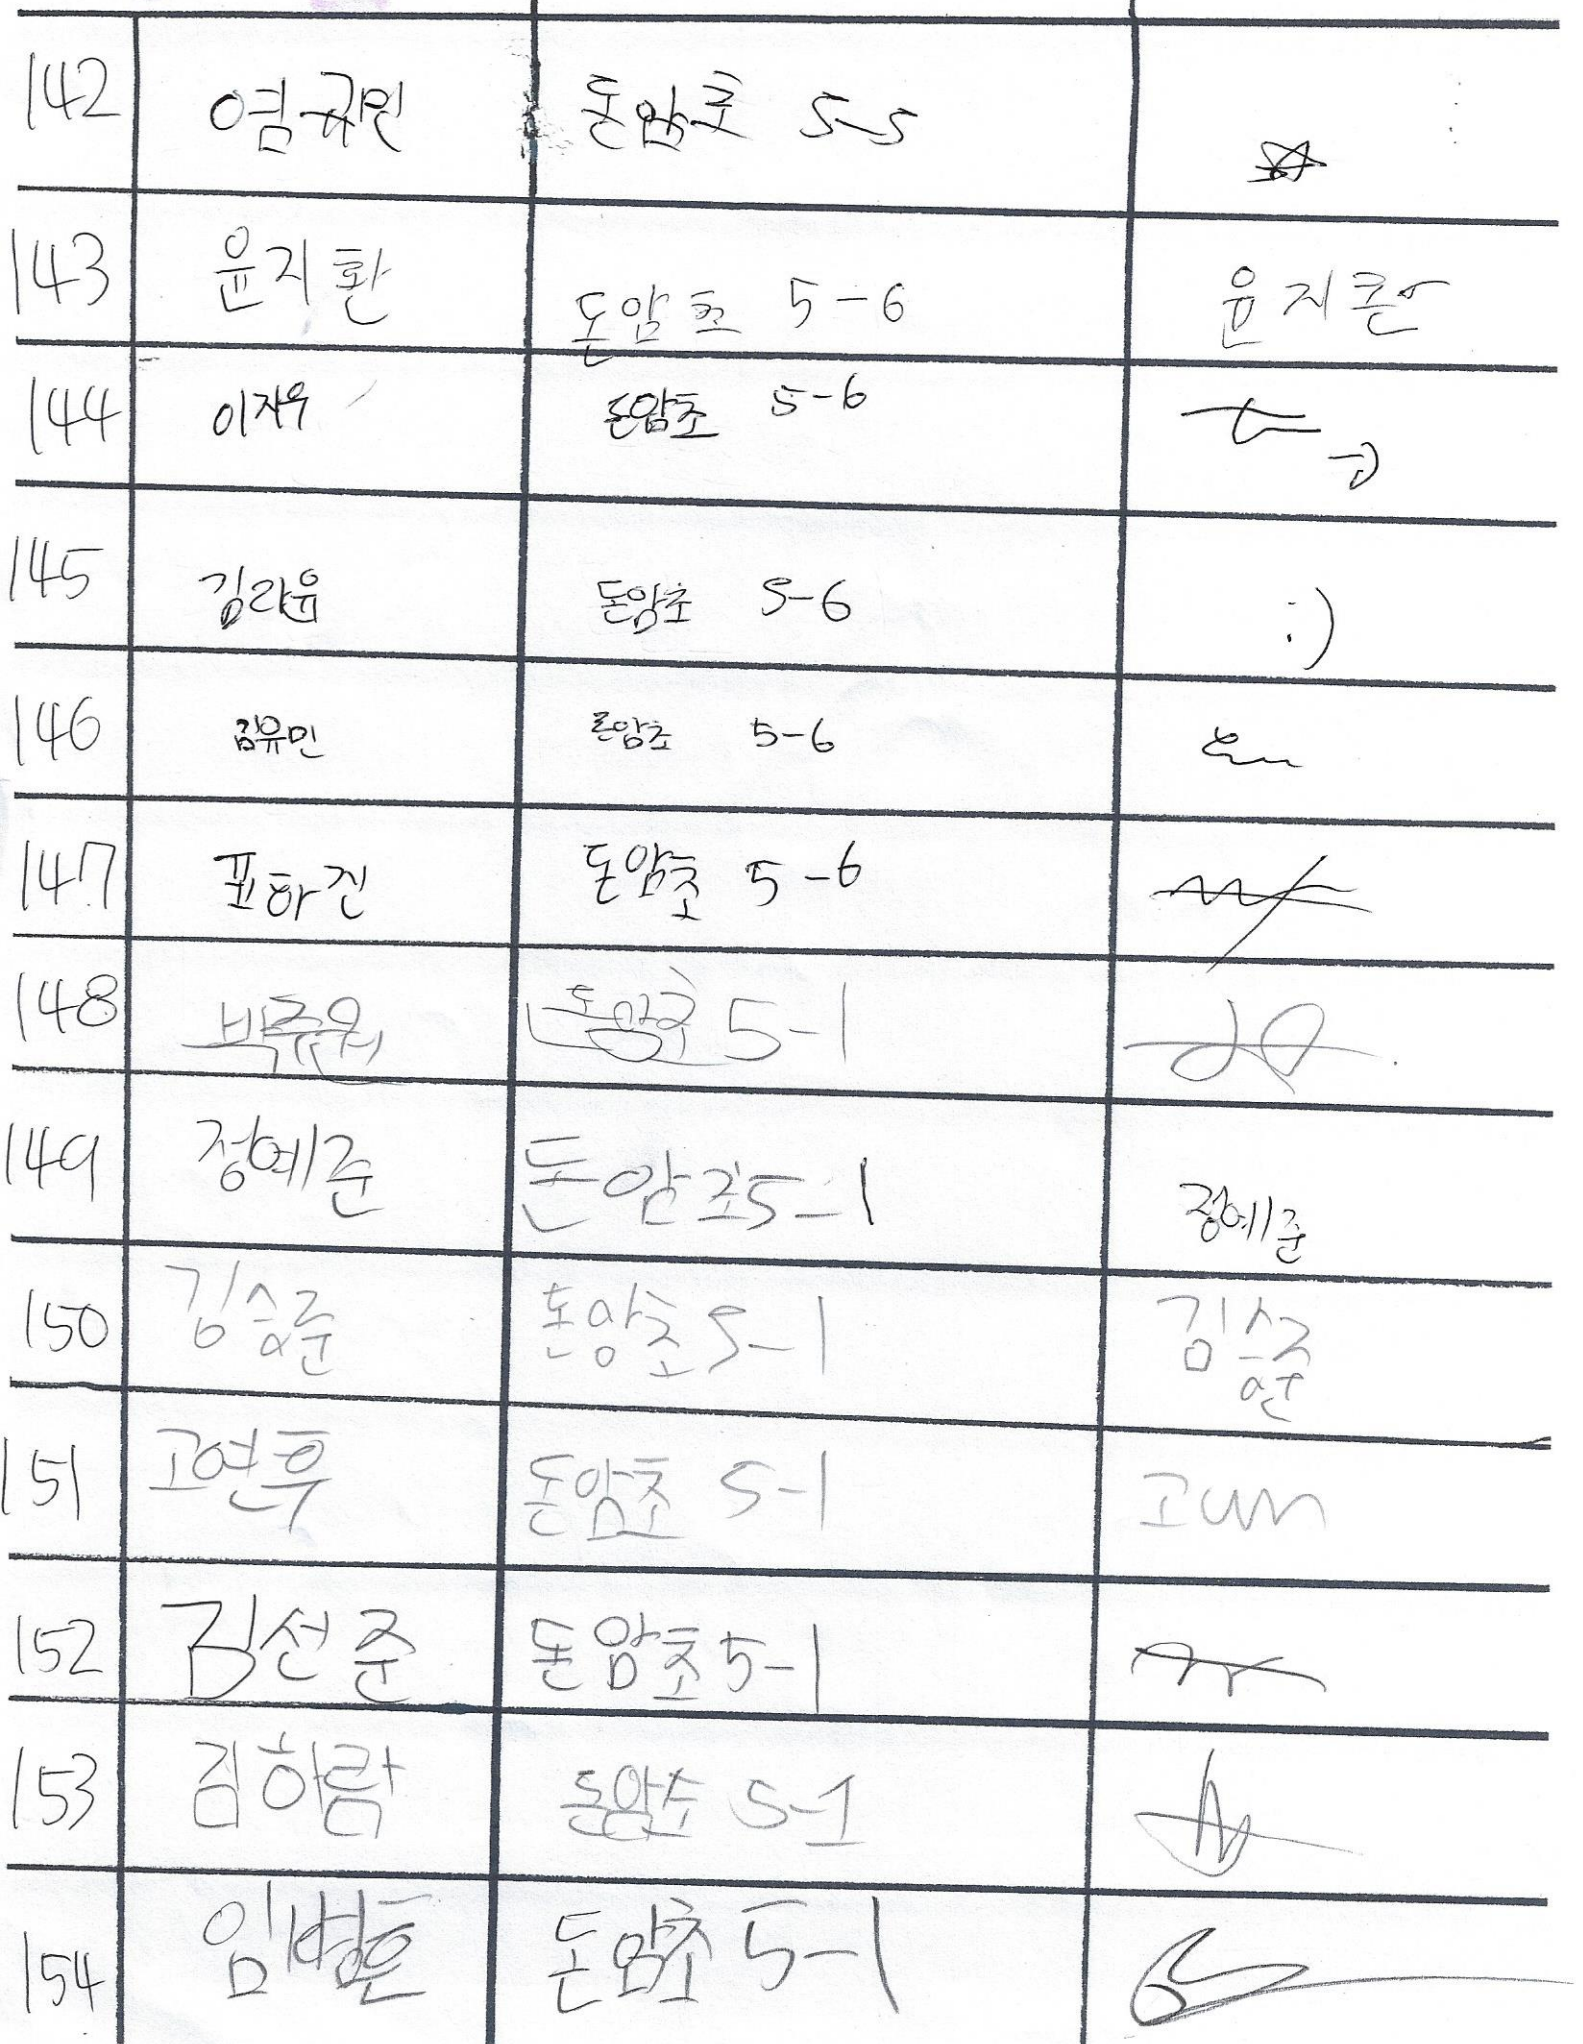 142 염규민 돈암초 5-5
143 윤지환 돈암초 5-6 윤지환
144 이지우 돈암초 5-6
145 김라윤 돈암초 5-6 :)
146 김유민 돈암초 5-6
147 표하진 돈암초 5-6
148 박주원 돈암초 5-1
149 정예준 돈암초 5-1 정예준
150 김승준 돈암초 5-1 김승준
151 고연후 돈암초 5-1 고
152 김선준 돈암초 5-1
153 김하람 돈암초 5-1
154 돈암초 5-1